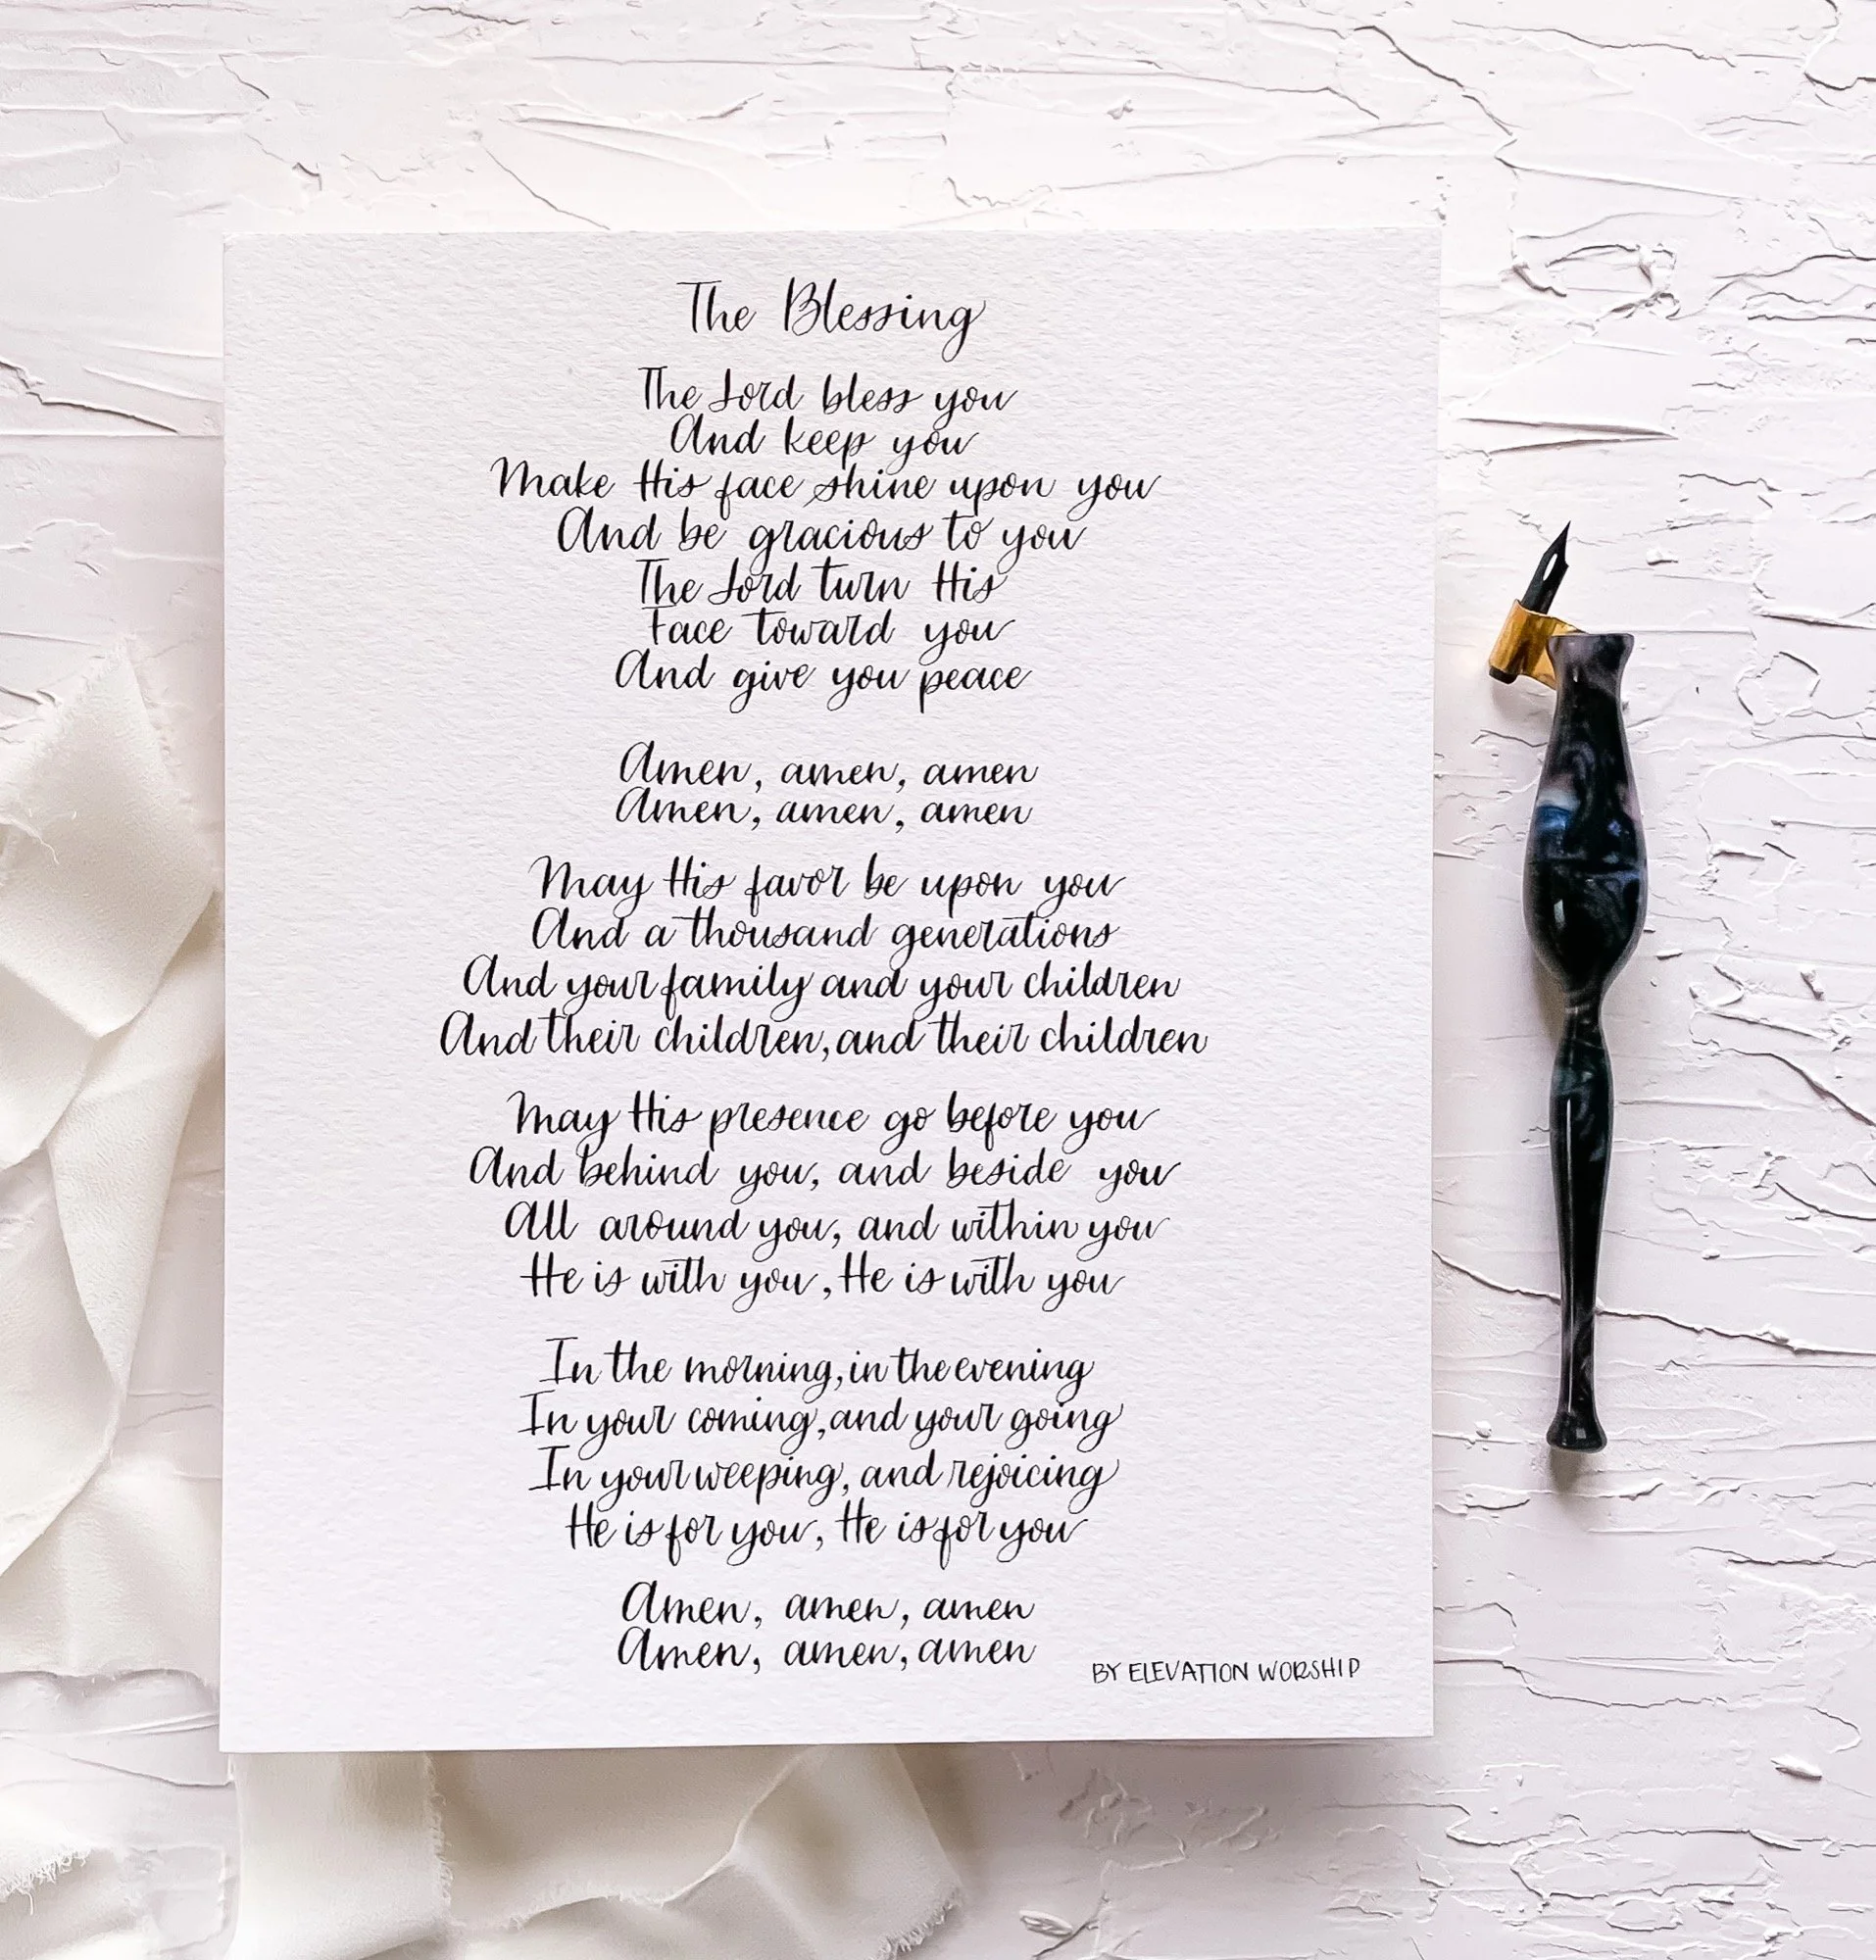 The Blessing
The Lord bless you
And keep you
Make His face shine upon you
And be gracious to you
The Lord turn His
Face toward you
And give you peace
Amen, amen, amen
Amen, amen, amen
May His favor be upon you
And a thousand generations
And your family and your children
And their children, and their children
May His presence go before you
And behind you, and beside you
All around you, and within you
He is with you, He is with you
In the morning, in the evening
In your coming, and your going
In your weeping, and rejoicing
He is for you, He is for you
Amen, amen, amen
Amen, amen, amen
BY ELEVATION WORSHIP